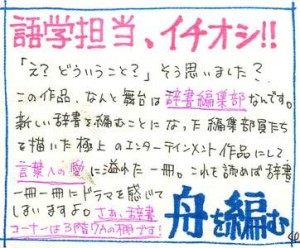 語学担当、イチオシ!!
「え?どういうこと?」そう思いました?
この作品、なんと舞台は辞書編集部なんです。
新しい辞書を編むことになった編集部員たち
を描いた極上のエンターテインメント作品にして
言葉への愛に溢れた一冊。これを読めば辞書
一冊一冊にドラマを感じて
しまいますよ。さぁ、辞書
コーナーは3階7Aの棚です!
舟を編む